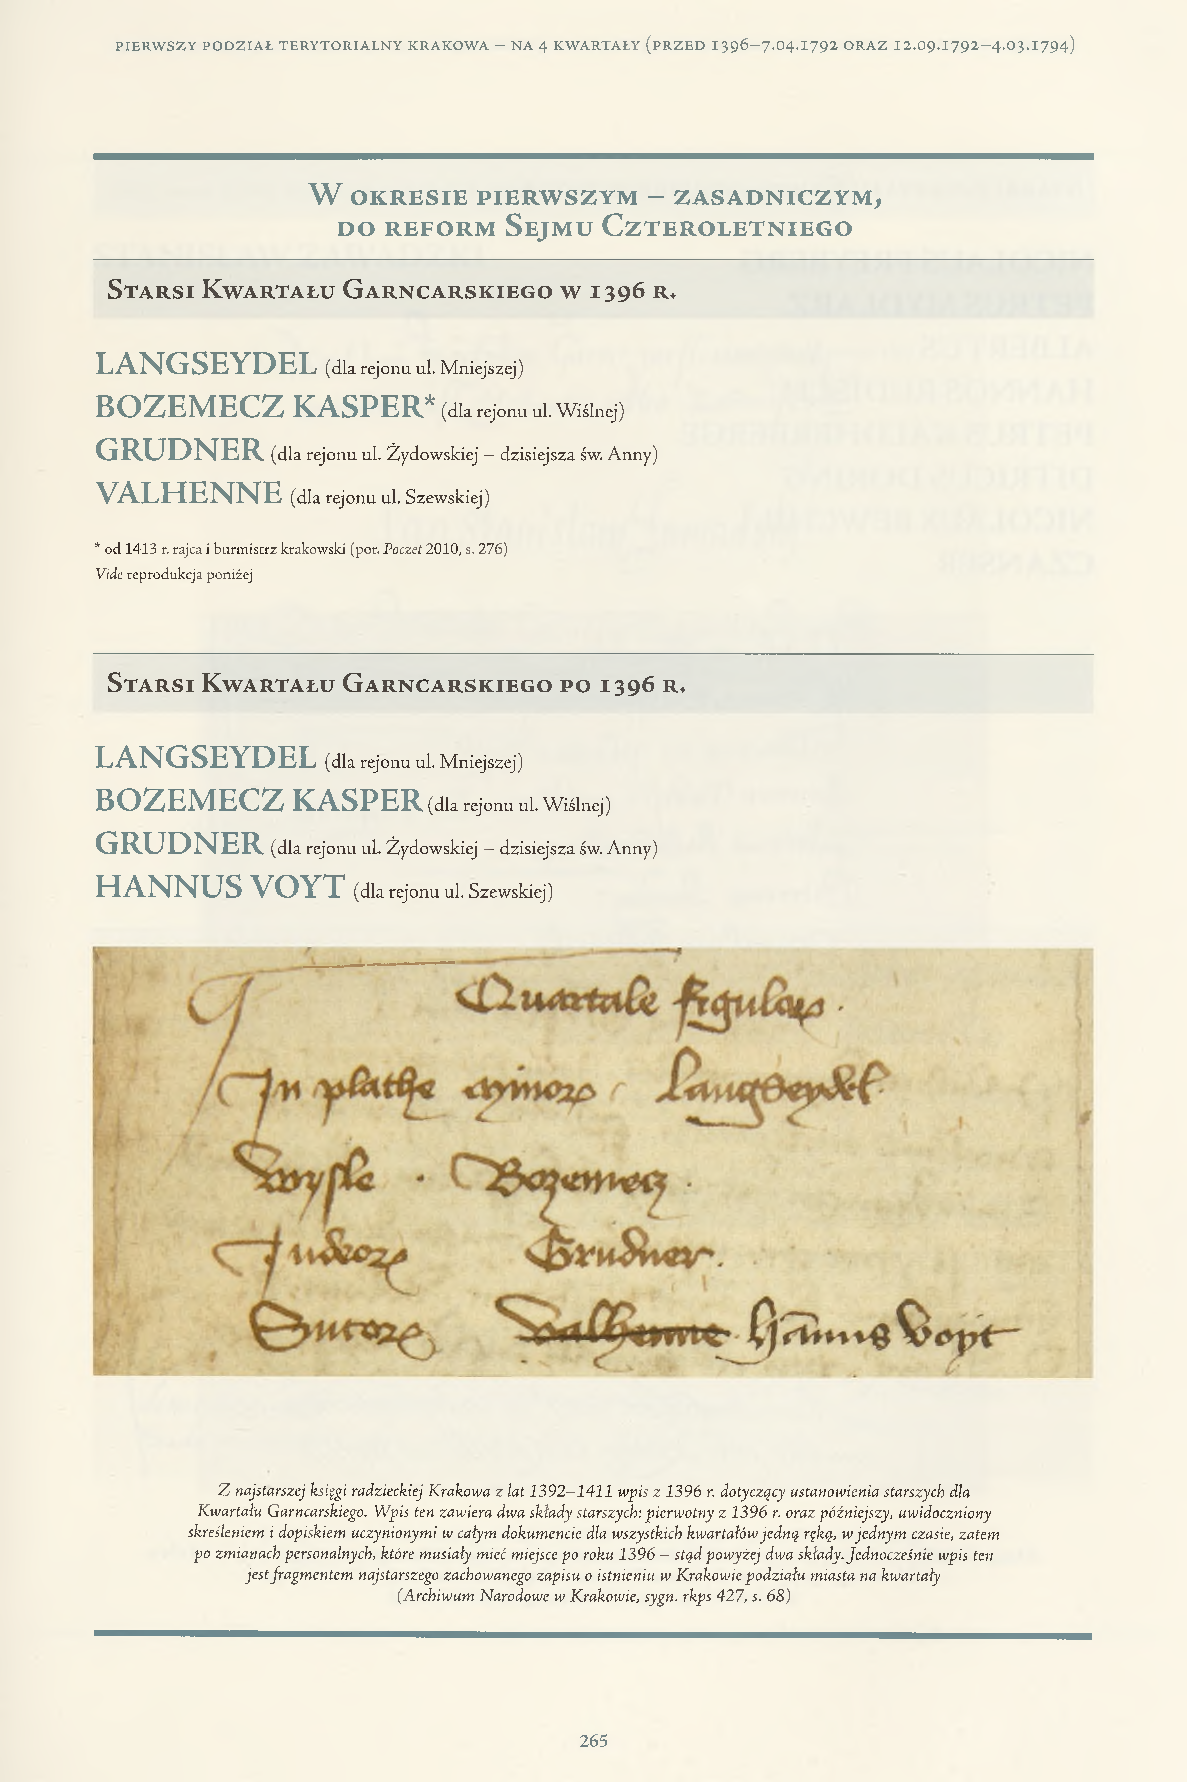 PIERWSZY PODZIAŁ TERYTORIALNY KRAKOWA – NA 4 KWARTAŁY (PRZED 1396–7.04.1792 ORAZ 12.09.1792–4.03.1794)
W OKRESIE PIERWSZYM – ZASADNICZYM,
DO REFORM SEJMU CZTEROLETNIEGO
STARSI KWARTAŁU GARNCARSKIEGO W 1396 R.
LANGSEYDEL (dla rejonu ul. Mniejszej)
BOZEMECZ KASPER* (dla rejonu ul. Wiślnej)
GRUDNER (dla rejonu ul. Żydowskiej – dzisiejsza św. Anny)
VALHENNE (dla rejonu ul. Szewskiej)
* od 1413 r. rajca i burmistrz krakowski (por. Poczet 2010, s. 276)
Vide reprodukcja poniżej
STARSI KWARTAŁU GARNCARSKIEGO PO 1396 R.
LANGSEYDEL (dla rejonu ul. Mniejszej)
BOZEMECZ KASPER (dla rejonu ul. Wiślnej)
GRUDNER (dla rejonu ul. Żydowskiej – dzisiejsza św. Anny)
HANNUS VOYT (dla rejonu ul. Szewskiej)
Quartale figulorꝝ ·
In plathe minorꝝ Langseydel
Wysle · Bozemecz ·
Iudeorꝝ Grudner.
Sutorꝝ Valhenne hānus Voyt
Z najstarszej księgi radzieckiej Krakowa z lat 1392–1411 wpis z 1396 r. dotyczący ustanowienia starszych dla
Kwartału Garncarskiego. Wpis ten zawiera dwa składy starszych: pierwotny z 1396 r. oraz późniejszy, uwidoczniony
skreśleniem i dopiskiem uczynionymi w całym dokumencie dla wszystkich kwartałów jedną ręką, w jednym czasie, zatem
po zmianach personalnych, które musiały mieć miejsce po roku 1396 – stąd powyżej dwa składy. Jednocześnie wpis ten
jest fragmentem najstarszego zachowanego zapisu o istnieniu w Krakowie podziału miasta na kwartały
(Archiwum Narodowe w Krakowie, sygn. rkps 427, s. 68)
265